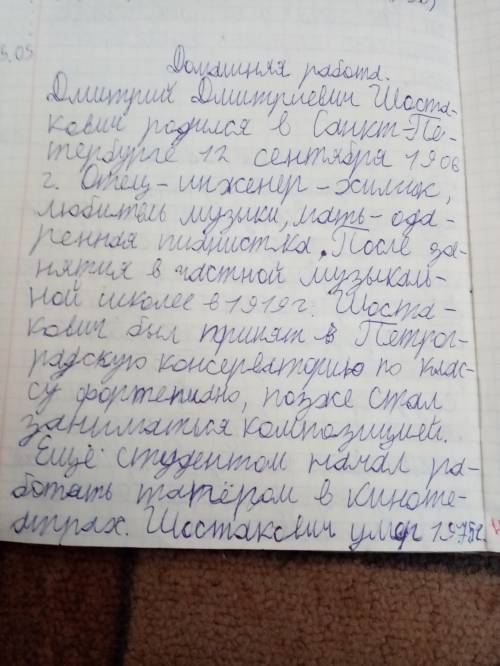 5.05
Домашняя работа.
Дмитрий Дмитриевич Шоста-
кович родился в Санкт-Пе-
тербурге 12 сентября 1906
г. Отец-инженер-химик,
любитель музыки, мать-ода-
ренная пианистка. После за-
нятия в частной музыкаль-
ной школее в 1919г. Шоста-
кович был принят в Петрог-
радскую консерваторию по клас-
су фортепиано, позже стал
заниматься композицией.
Ещё студентом начал ра-
ботать тапёром в киноте-
атрах. Шостакович умер 1975г.